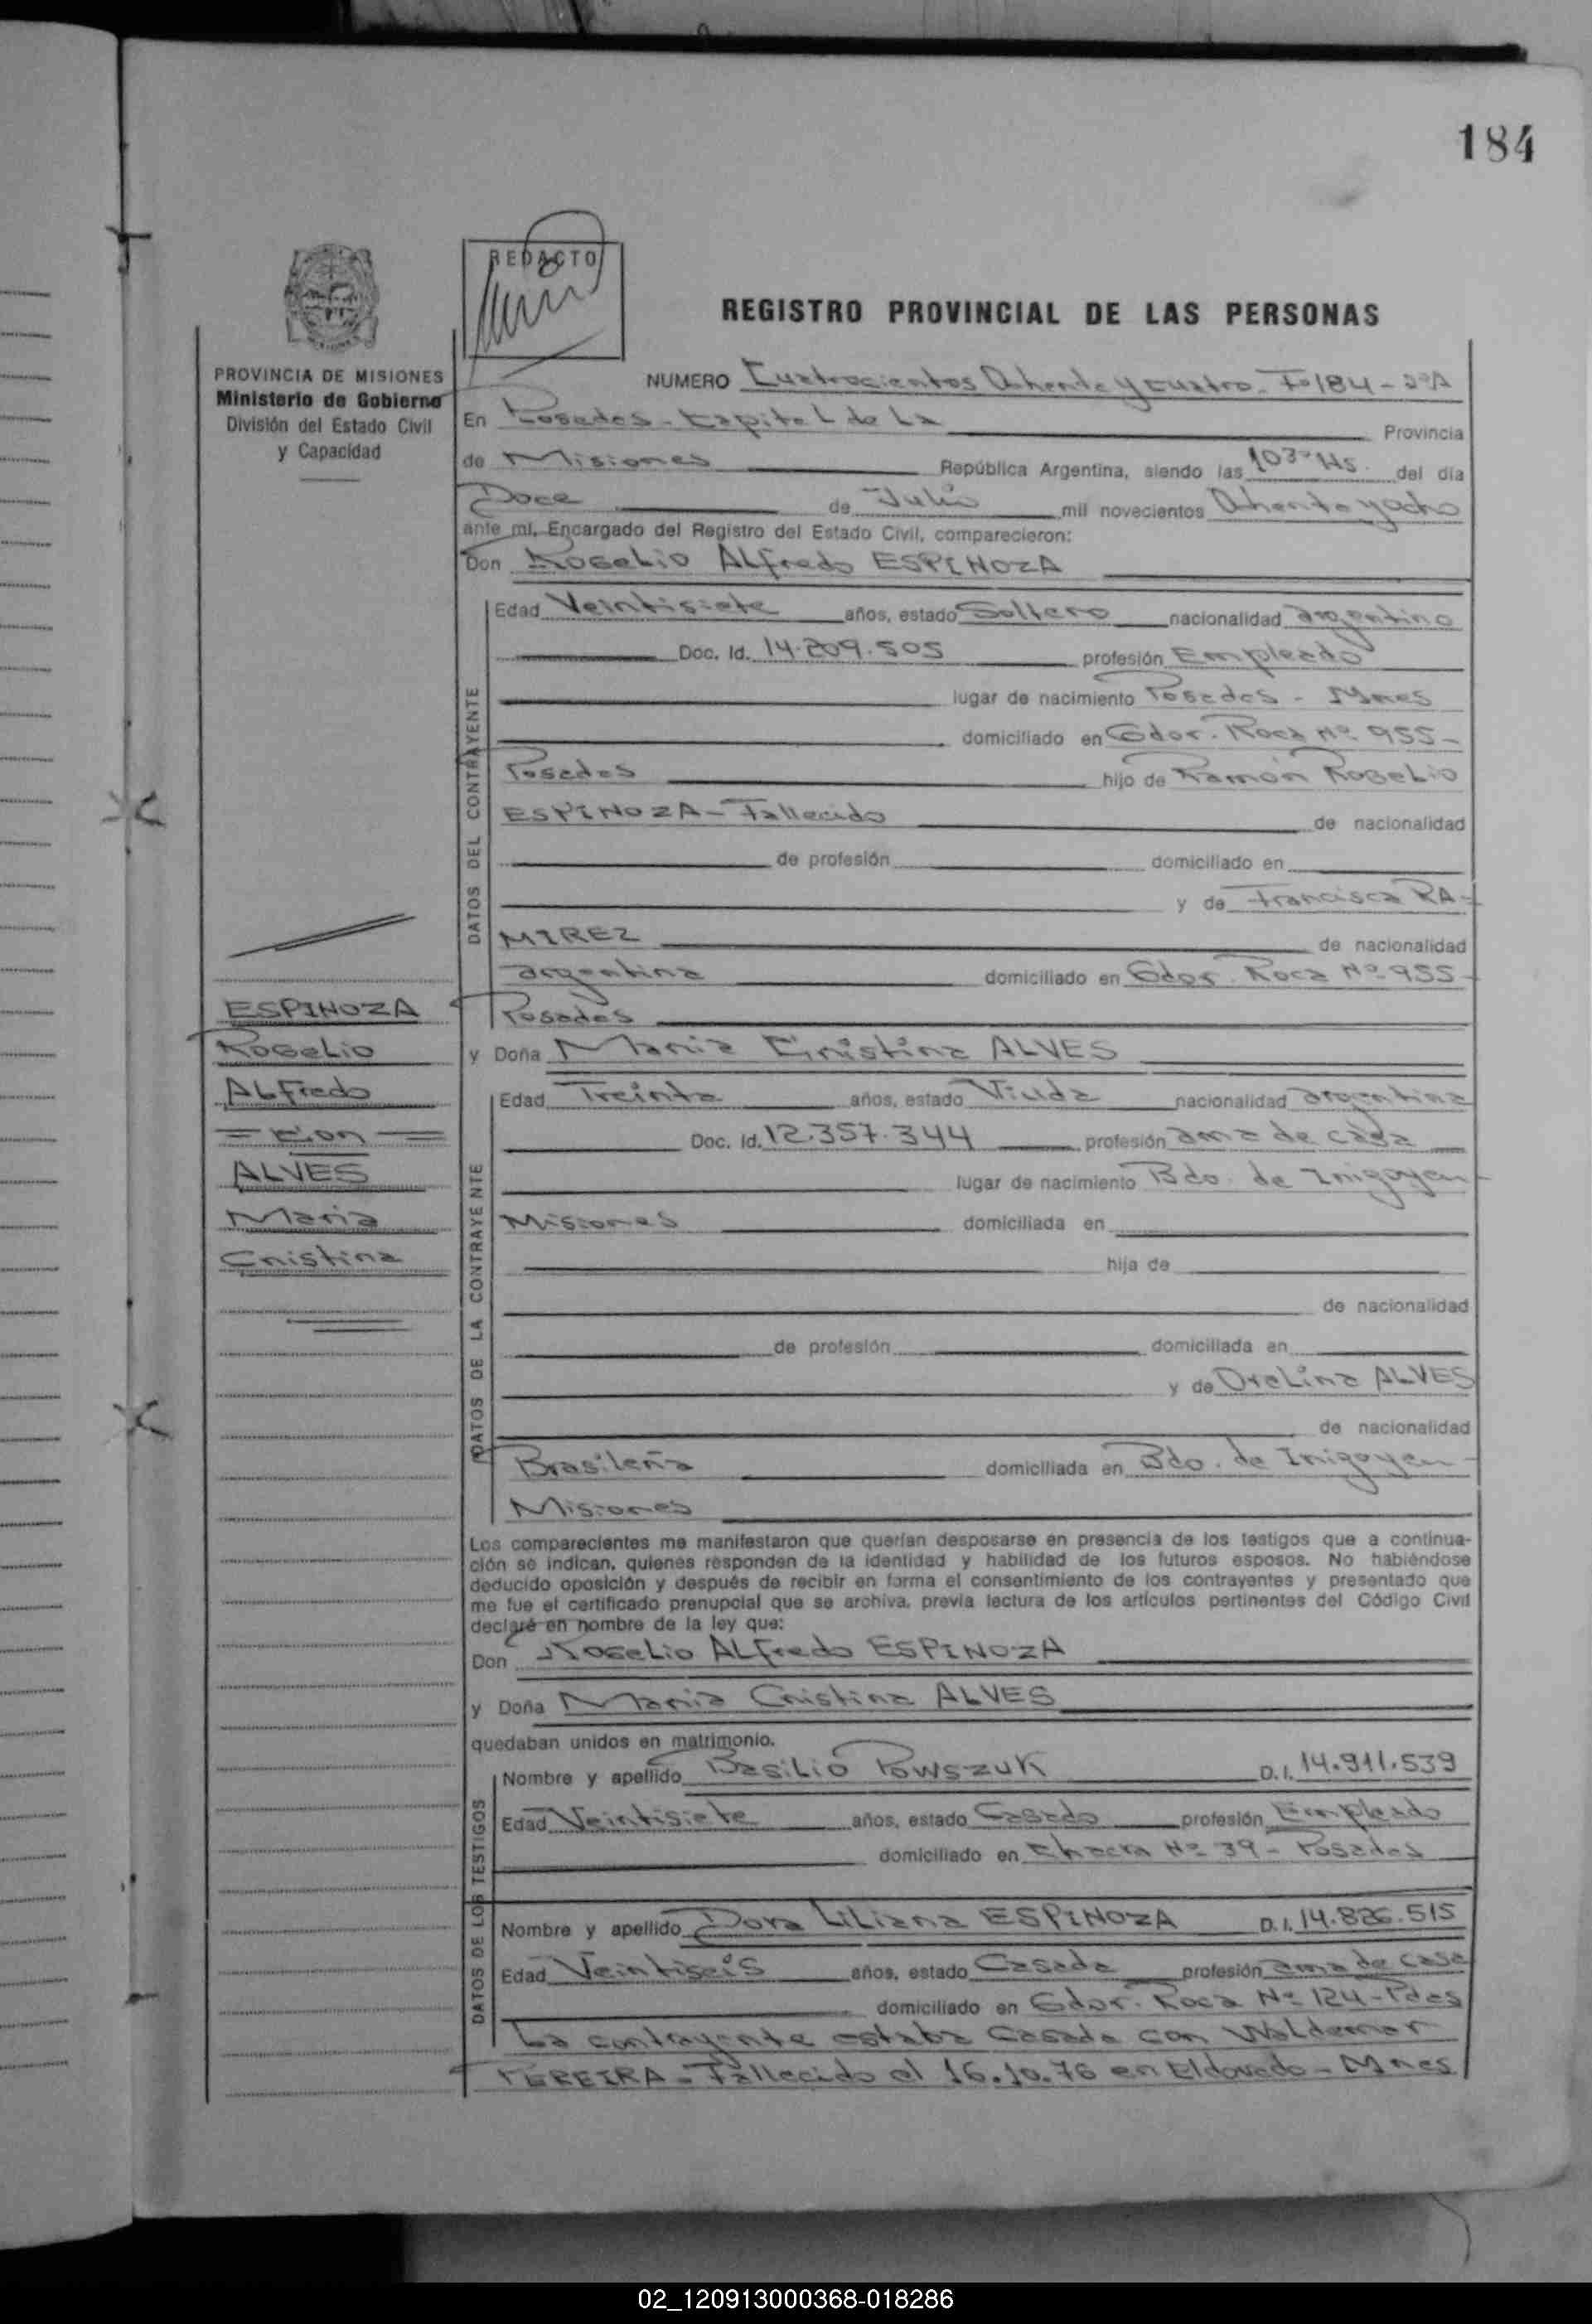 184
REDACTO
REGISTRO PROVINCIAL DE LAS PERSONAS
PROVINCIA DE MISIONES
Ministerio de Gobierno
División del Estado Civil
y Capacidad
NUMERO Cuatrocientos Ochenta y cuatro - Fº 184 - 2ºA
En Posadas - Capital de La Provincia
de Misiones República Argentina, siendo las 10 30 Hs. del día
Doce de Julio mil novecientos Ochenta y ocho
ante mí, Encargado del Registro del Estado Civil, comparecieron:
Don Rogelio Alfredo ESPINOZA
DATOS DEL CONTRAYENTE
Edad Veintisiete años, estado Soltero nacionalidad argentino
Doc. Id. 14.209.505 profesión Empleado
lugar de nacimiento Posadas - Mnes
domiciliado en Gdor. Roca Nº 955-
Posadas hijo de Ramón Rogelio
ESPINOZA - Fallecido de nacionalidad
de profesión domiciliado en
y de Francisca RA=
MIREZ de nacionalidad
argentina domiciliado en Gdor. Roca Nº 955-
Posadas
ESPINOZA
Rogelio
Alfredo
= con =
ALVES
Maria
Cristina
y Doña Maria Cristina ALVES
DATOS DE LA CONTRAYENTE
Edad Treinta años, estado Viuda nacionalidad argentina
Doc. Id. 12.357.344 profesión ama de casa
lugar de nacimiento Bdo. de Irigoyen -
Misiones domiciliada en
hija de
de nacionalidad
de profesión domiciliada en
y de Orelina ALVES
de nacionalidad
Brasileña domiciliada en Bdo. de Irigoyen -
Misiones
Los comparecientes me manifestaron que querían desposarse en presencia de los testigos que a continua-
ción se indican, quienes responden de la identidad y habilidad de los futuros esposos. No habiéndose
deducido oposición y después de recibir en forma el consentimiento de los contrayentes y presentado que
me fue el certificado prenupcial que se archiva, previa lectura de los artículos pertinentes del Código Civil
declaré en nombre de la ley que:
Don Rogelio Alfredo ESPINOZA
y Doña Maria Cristina ALVES
quedaban unidos en matrimonio.
DATOS DE LOS TESTIGOS
Nombre y apellido Basilio Powszuk D.I. 14.911.539
Edad Veintisiete años, estado Casado profesión Empleado
domiciliado en Chacra Nº 39 - Posadas
Nombre y apellido Dora Liliana ESPINOZA D.I. 14.826.515
Edad Veintiseis años, estado Casada profesión ama de casa
domiciliado en Gdor. Roca Nº 124 - Pdas
La contrayente estaba Casada con Waldemar
PEREIRA - Fallecido el 16.10.76 en Eldorado - Mnes
02_120913000368-018286